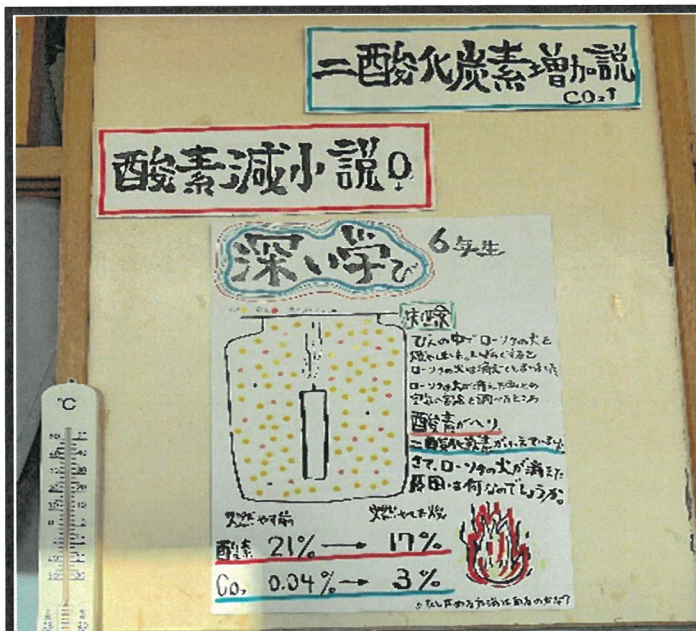 二酸化炭素増加説
CO₂↑
酸素減小説
深い学び
6年生
実験
びんの中でローソクの火を
燃やしました。しばらくすると
ローソクの火は消えてしまいました
ローソクの火が消えたあとの
空気の
酸素がへり、
二酸化炭素がふえていました。
さて、ローソクの火が消えた
原因は何なのでしょうか。
燃やす前
燃やした後
酸素 21% → 17%
CO₂ 0.04% → 3%
℃